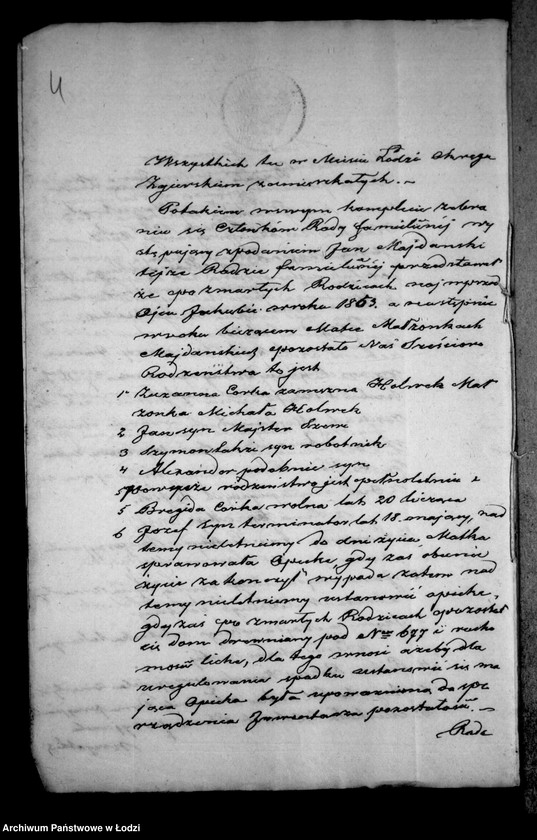 4
Wszystkich tu w Mieście Łodzi Okręgu
Zgierskim zamieszkałych. –
Po takim w swym komplecie zebra
niu się Członków Rady familijnej wy
stępujący z podaniem Jan Majdanski
tejże Radzie familijnej przedstawił
że po zmarłych Rodzicach najprzód
Ojcu Jakubie w roku 1863. a następnie
w roku bieżącem Matce Małżonkach
Majdanskich, pozostało Nas Sześcioro
Rodzeństwa to jest
1 Zuzanna Corka zamężna Holwek Mał
żonka Michała Holwek
2 Jan syn Majster
3 Szymon także syn robotnik
4 Alexander podobnie syn
powyższe rodzeństwo jest pełnoletnie i
5 Brygida Corka wolna lat 20 licząca
6 Jozef Syn terminator lat 18. mający, nad
temy nieletniemy do dni życia Matka
sprawowała Opiekę gdy zaś obecnie
życie zakończyła wypada zatem nad
temy nieletniemy ustanowić opiekę,
gdy zaś po zmarłych Rodzicach pozostał
się dom drewniany pod Nrem 677 i rucho
mości liche, dla tego wnosi ażeby dla
uregulowania spadku ustanowić się ma
jąca Opieka była upoważnioną do spo
rządzenia Inwentarza pozostałości. –
Rada
Archiwum Państwowe w Łodzi